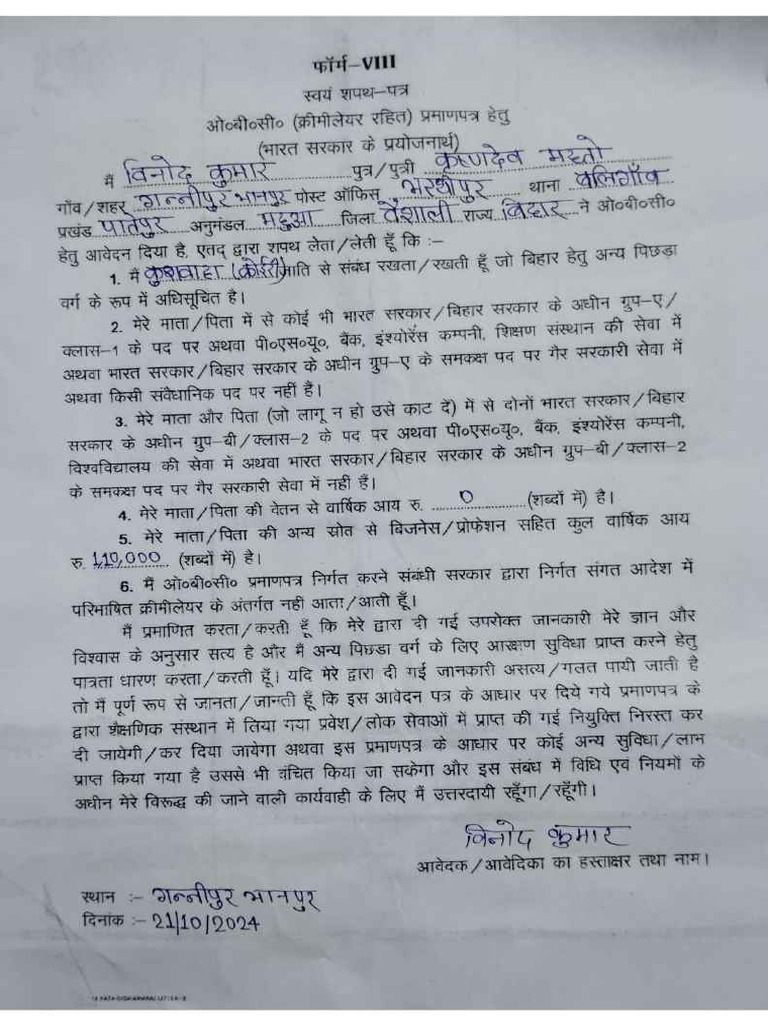 फॉर्म–VIII
स्वयं शपथ–पत्र
ओ०बी०सी० (क्रीमीलेयर रहित) प्रमाणपत्र हेतु
(भारत सरकार के प्रयोजनार्थ)
मैं विनोद कुमार पुत्र/पुत्री कृष्णदेव महतो
गाँव/शहर गन्नीपुर भानपुर पोस्ट ऑफिस भरथीपुर थाना बलिगाँव
प्रखंड पातेपुर अनुमंडल महुआ जिला वैशाली राज्य बिहार ने ओ०बी०सी०
हेतु आवेदन दिया है, एतद् द्वारा शपथ लेता/लेती हूँ कि :–
1. मैं कुशवाहा (कोईरी) जाति से संबंध रखता/रखती हूँ जो बिहार हेतु अन्य पिछड़ा
वर्ग के रूप में अधिसूचित है।
2. मेरे माता/पिता में से कोई भी भारत सरकार/बिहार सरकार के अधीन ग्रुप–ए/
क्लास–1 के पद पर अथवा पी०एस०यू०, बैंक, इंश्योरेंस कम्पनी, शिक्षण संस्थान की सेवा में
अथवा भारत सरकार/बिहार सरकार के अधीन ग्रुप–ए के समकक्ष पद पर गैर सरकारी सेवा में
अथवा किसी संवैधानिक पद पर नहीं है।
3. मेरे माता और पिता (जो लागू न हो उसे काट दें) में से दोनों भारत सरकार/बिहार
सरकार के अधीन ग्रुप–बी/क्लास–2 के पद पर अथवा पी०एस०यू०, बैंक, इंश्योरेंस कम्पनी,
विश्वविद्यालय की सेवा में अथवा भारत सरकार/बिहार सरकार के अधीन ग्रुप–बी/क्लास–2
के समकक्ष पद पर गैर सरकारी सेवा में नहीं हैं।
4. मेरे माता/पिता की वेतन से वार्षिक आय रु. 0 (शब्दों में) है।
5. मेरे माता/पिता की अन्य स्रोत से बिजनेस/प्रोफेशन सहित कुल वार्षिक आय
रु. 1,10,000 (शब्दों में) है।
6. मैं ओ०बी०सी० प्रमाणपत्र निर्गत करने संबंधी सरकार द्वारा निर्गत संगत आदेश में
परिभाषित क्रीमीलेयर के अंतर्गत नहीं आता/आती हूँ।
मैं प्रमाणित करता/करती हूँ कि मेरे द्वारा दी गई उपरोक्त जानकारी मेरे ज्ञान और
विश्वास के अनुसार सत्य है और मैं अन्य पिछड़ा वर्ग के लिए आरक्षण सुविधा प्राप्त करने हेतु
पात्रता धारण करता/करती हूँ। यदि मेरे द्वारा दी गई जानकारी असत्य/गलत पायी जाती है
तो मैं पूर्ण रूप से जानता/जानती हूँ कि इस आवेदन पत्र के आधार पर दिये गये प्रमाणपत्र के
द्वारा शैक्षणिक संस्थान में लिया गया प्रवेश/लोक सेवाओं में प्राप्त की गई नियुक्ति निरस्त कर
दी जायेगी/कर दिया जायेगा अथवा इस प्रमाणपत्र के आधार पर कोई अन्य सुविधा/लाभ
प्राप्त किया गया है उससे भी वंचित किया जा सकेगा और इस संबंध में विधि एवं नियमों के
अधीन मेरे विरूद्ध की जाने वाली कार्यवाही के लिए मैं उत्तरदायी रहूँगा/रहूँगी।
विनोद कुमार
आवेदक/आवेदिका का हस्ताक्षर तथा नाम।
स्थान :– गन्नीपुर भानपुर
दिनांक :– 21/10/2024